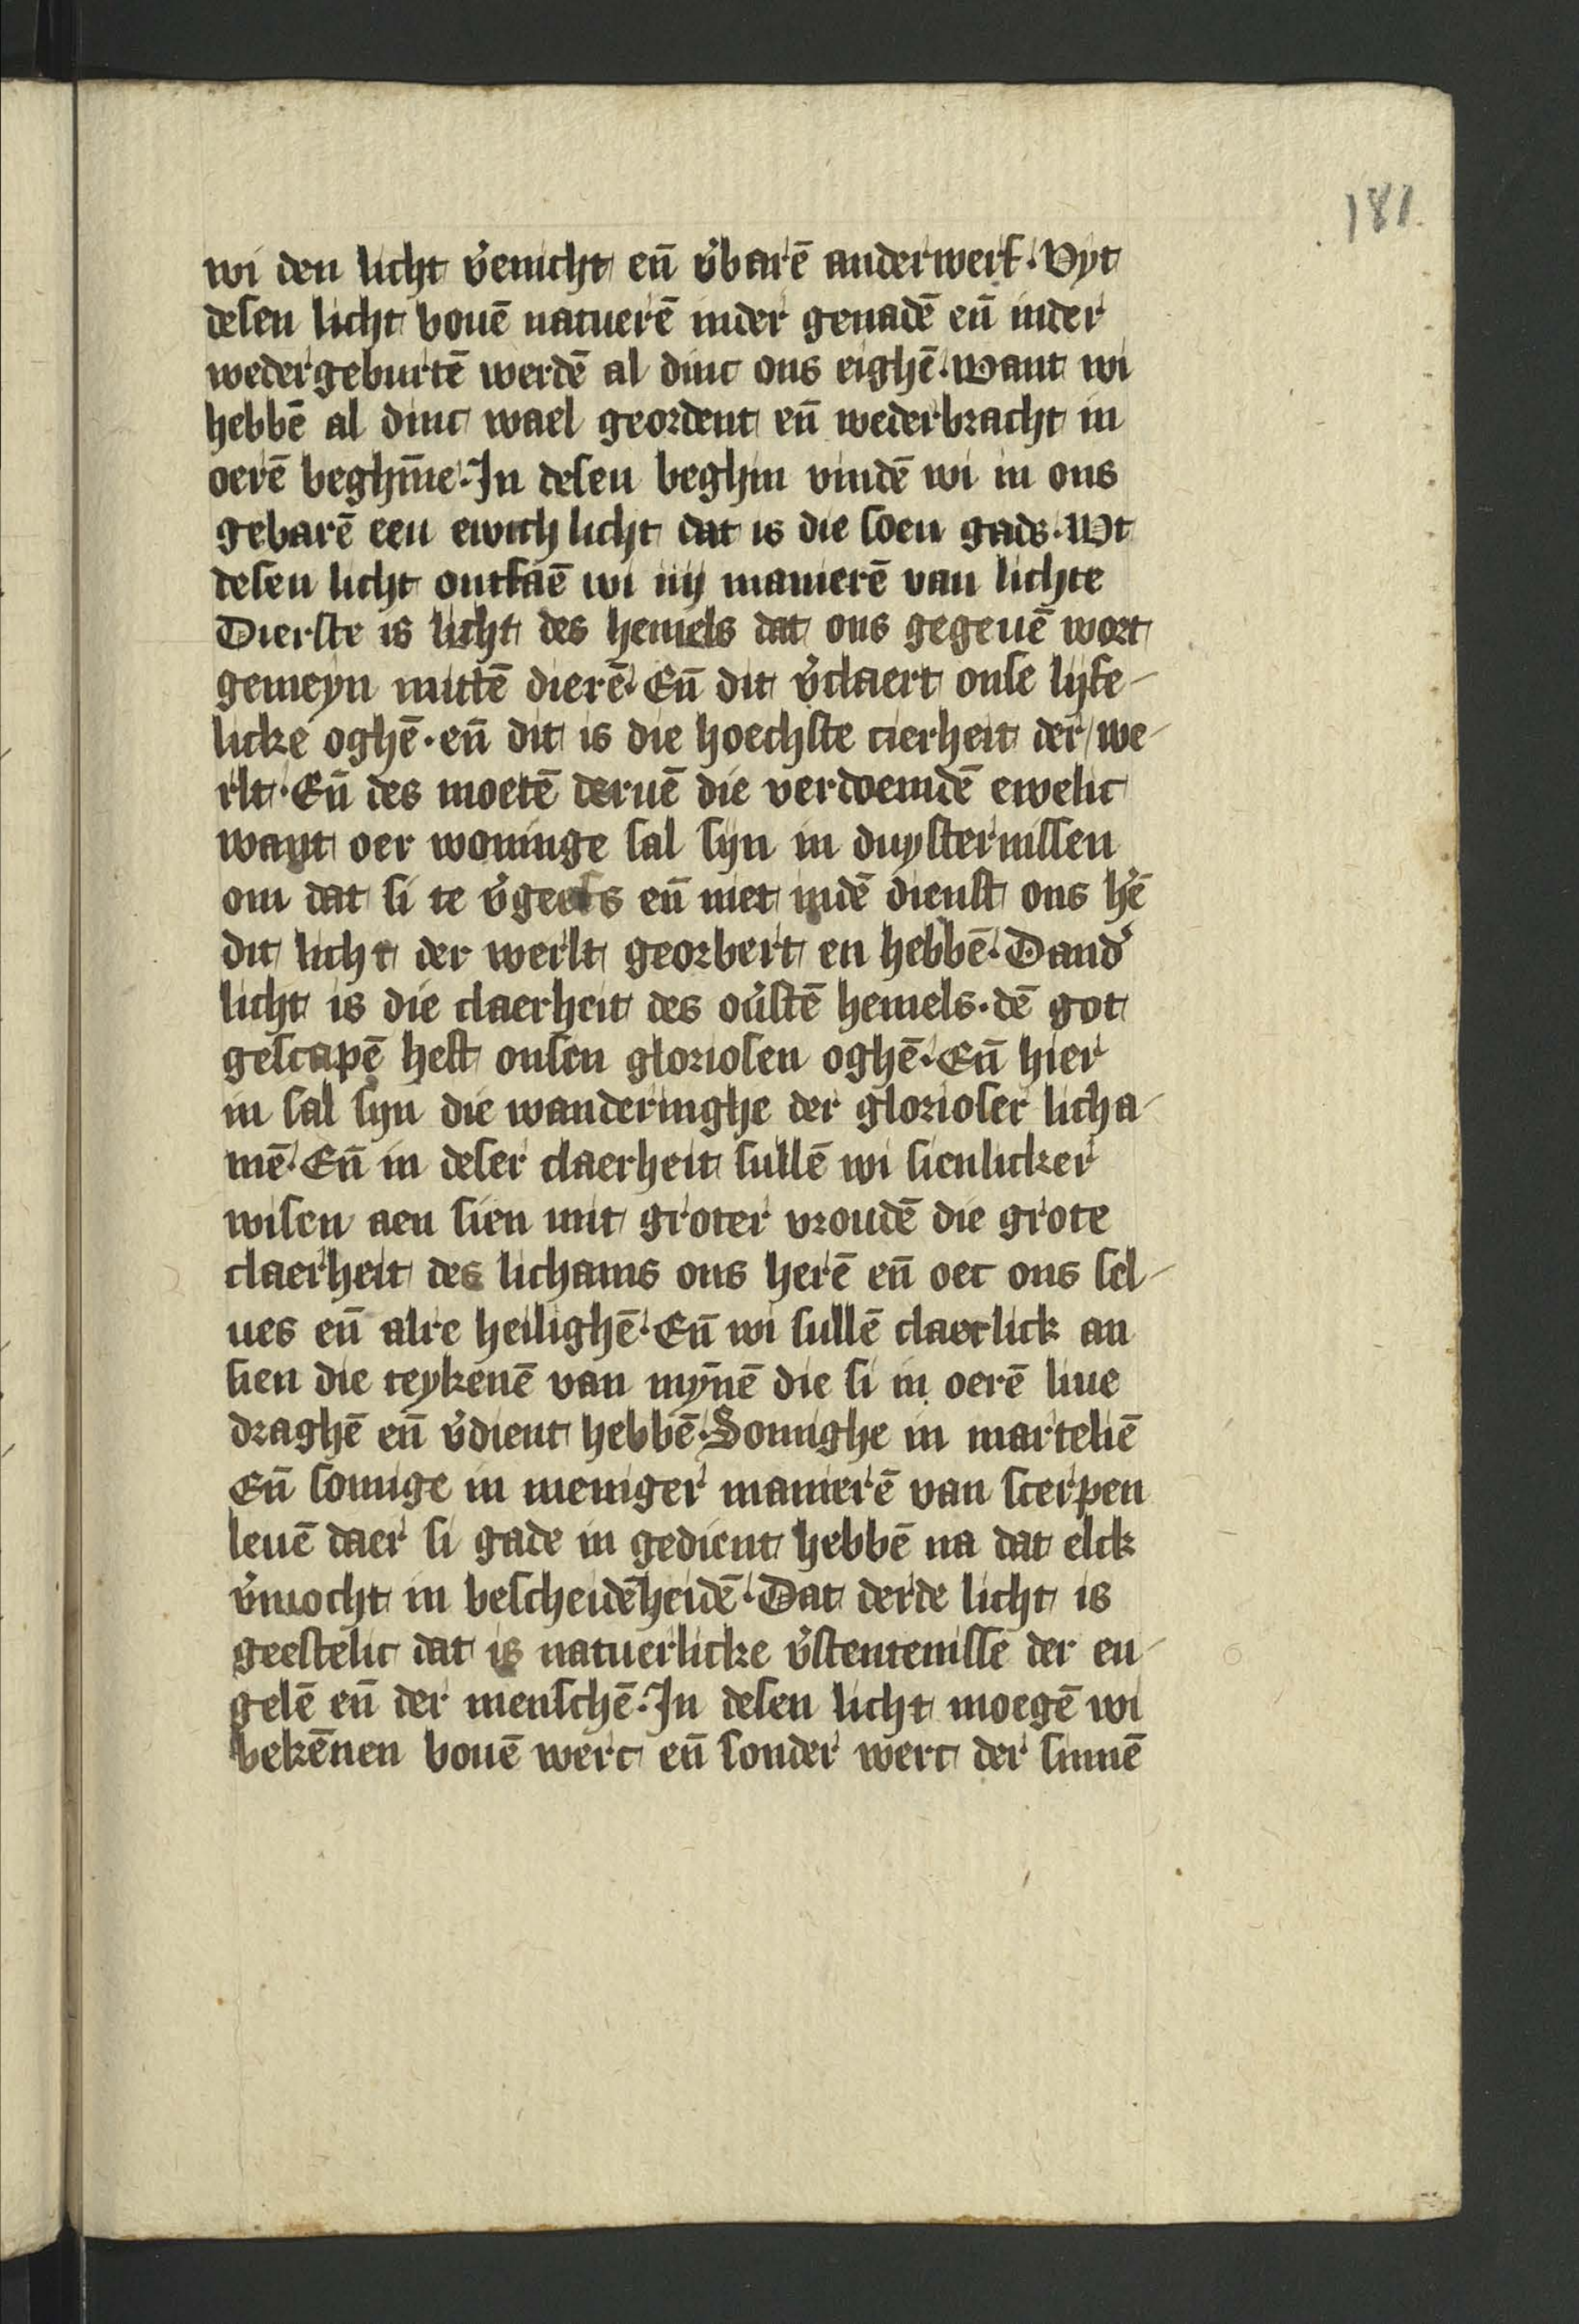 181
wi den licht v̾enicht en̄ v̾barē anderwerf. Vyt
desen licht bouē natuerē inder genadē en̄ inder
wedergeburtē werdē al dinc ons eighē. want wi
hebbē al dinc wael geordent en̄ wederbracht in
oerē beghīne. In desen beghin vindē wi in ons
gebarē een ewich licht dat is die soen gads. Wt
desen licht ontfaē wi iiij manierē van lichte
Dierste is licht des hemels dat ons gegeuē wort
gemeyn mittē dierē. En̄ dit v̾claert onse lijfe-
licke oghē. en̄ dit is die hoechste cierheit der we-
rlt. En̄ des moetē deruē die verdoemdē ewelic
want oer woninge sal sijn in duysternissen
om dat si te v̾geefs en̄ niet indē dienst ons hē
dit licht der werlt georbert en hebbē. Dand̾
licht is die claerheit des ou̾stē hemels. dē got
gescapē heft onsen gloriosen oghē. En̄ hier
in sal sijn die wanderinghe der glorioser licha-
mē. En̄ in deser claerheit sullē wi sienlicker
wisen aen sien mit groter vroudē die grote
claerheit des lichams ons herē en̄ oec ons sel-
ues en̄ alre heilighē. En̄ wi sullē claerlick an
sien die teykenē van mȳnē die si in oerē liue
draghē en̄ v̾dient hebbē. Somighe in marteliē
En̄ somige in meniger manierē van scerpen
leuē daer si gade in gedient hebbē na dat elck
v̾mocht in bescheidēheidē. Dat derde licht is
geestelic dat is natuerlicke v̾stentenisse der en-
gelē en̄ der menschē. In desen licht moegē wi
bekēnen bouē werc en̄ sonder werc der sinnē